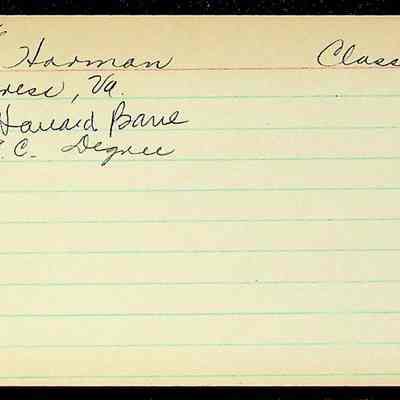 Harman Class
ress, Va.
Howard Bane
C. Degree